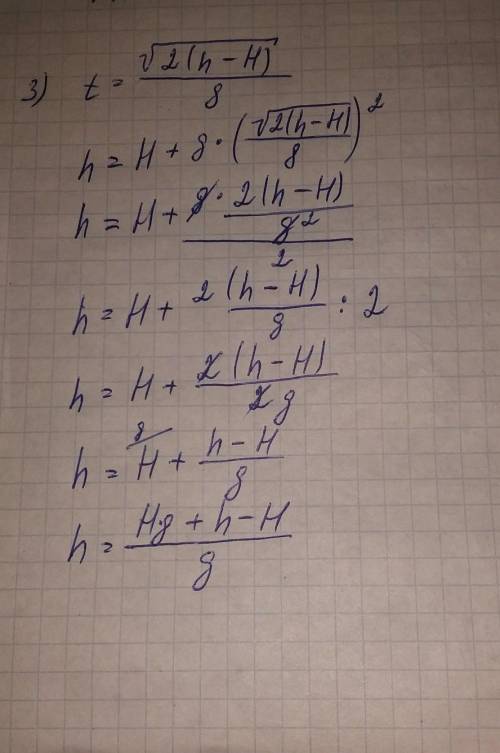 3) t = √(2(h-H)) / g
h = H + g · (√(2(h-H)) / g)²
h = H + (g · 2(h-H) / g²) / 2
h = H + 2(h-H) / g : 2
h = H + 2(h-H) / 2g
h = H + (h-H) / g
h = (Hg + h - H) / g